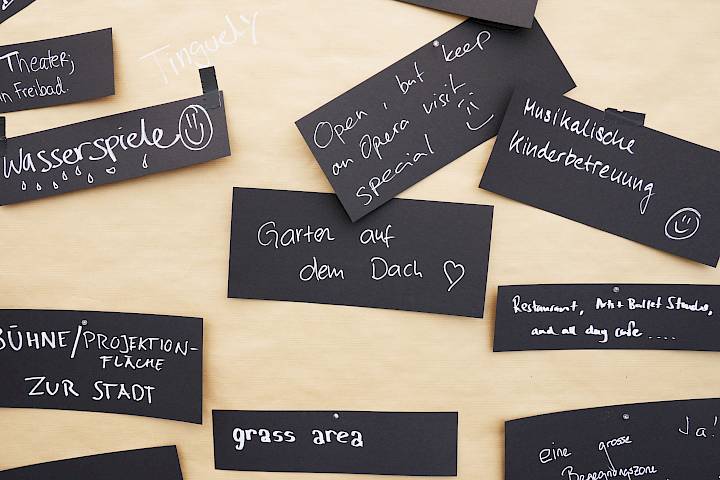 Theater,
in Freibad.
Tinguely
Wasserspiele
Open, but keep
an Opera visit
special
Musikalische
Kinderbetreuung
Garten auf
dem Dach
Restaurant, Arts + Ballet Studio,
and all day cafe ....
BÜHNE/PROJEKTION-
FLÄCHE
ZUR STADT
grass area
Ja!
eine grosse
Begegnungszone